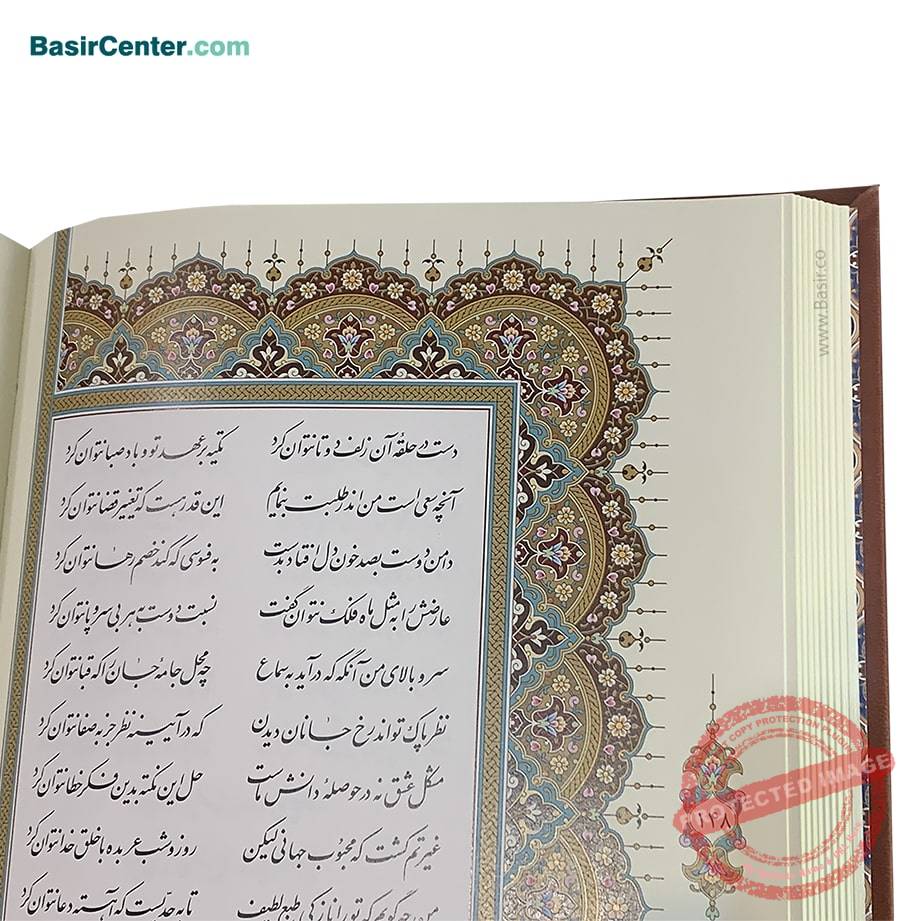 BasirCenter.com
www.Basir.co
دست در حلقهٔ آن زلف دوتا نتوان کرد تکیه بر عهد تو و باد صبا نتوان کرد
آنچه سعی است من اندر طلبت بنمایم این قدر هست که تغییر قضا نتوان کرد
دامن دوست بصد خون دل افتاد بدست به فسوسی که کند خصم رها نتوان کرد
عارضش را به مثل ماه فلک نتوان گفت نسبت دوست به هر بی سر و پا نتوان کرد
سرو بالای من آنگه که درآید به سماع چه محل جامهٔ جان را که قبا نتوان کرد
نظر پاک تواند رخ جانان دیدن که در آیینه نظر جز به صفا نتوان کرد
مشکل عشق نه در حوصلهٔ دانش ماست حل این نکته بدین فکر خطا نتوان کرد
غیرتم کشت که محبوب جهانی لیکن روز و شب عربده با خلق خدا نتوان کرد
من چه گویم که تو را نازکی طبع لطیف تا به حدیست که آهسته دعا نتوان کرد
COPY PROTECTION
PROTECTED IMAGE